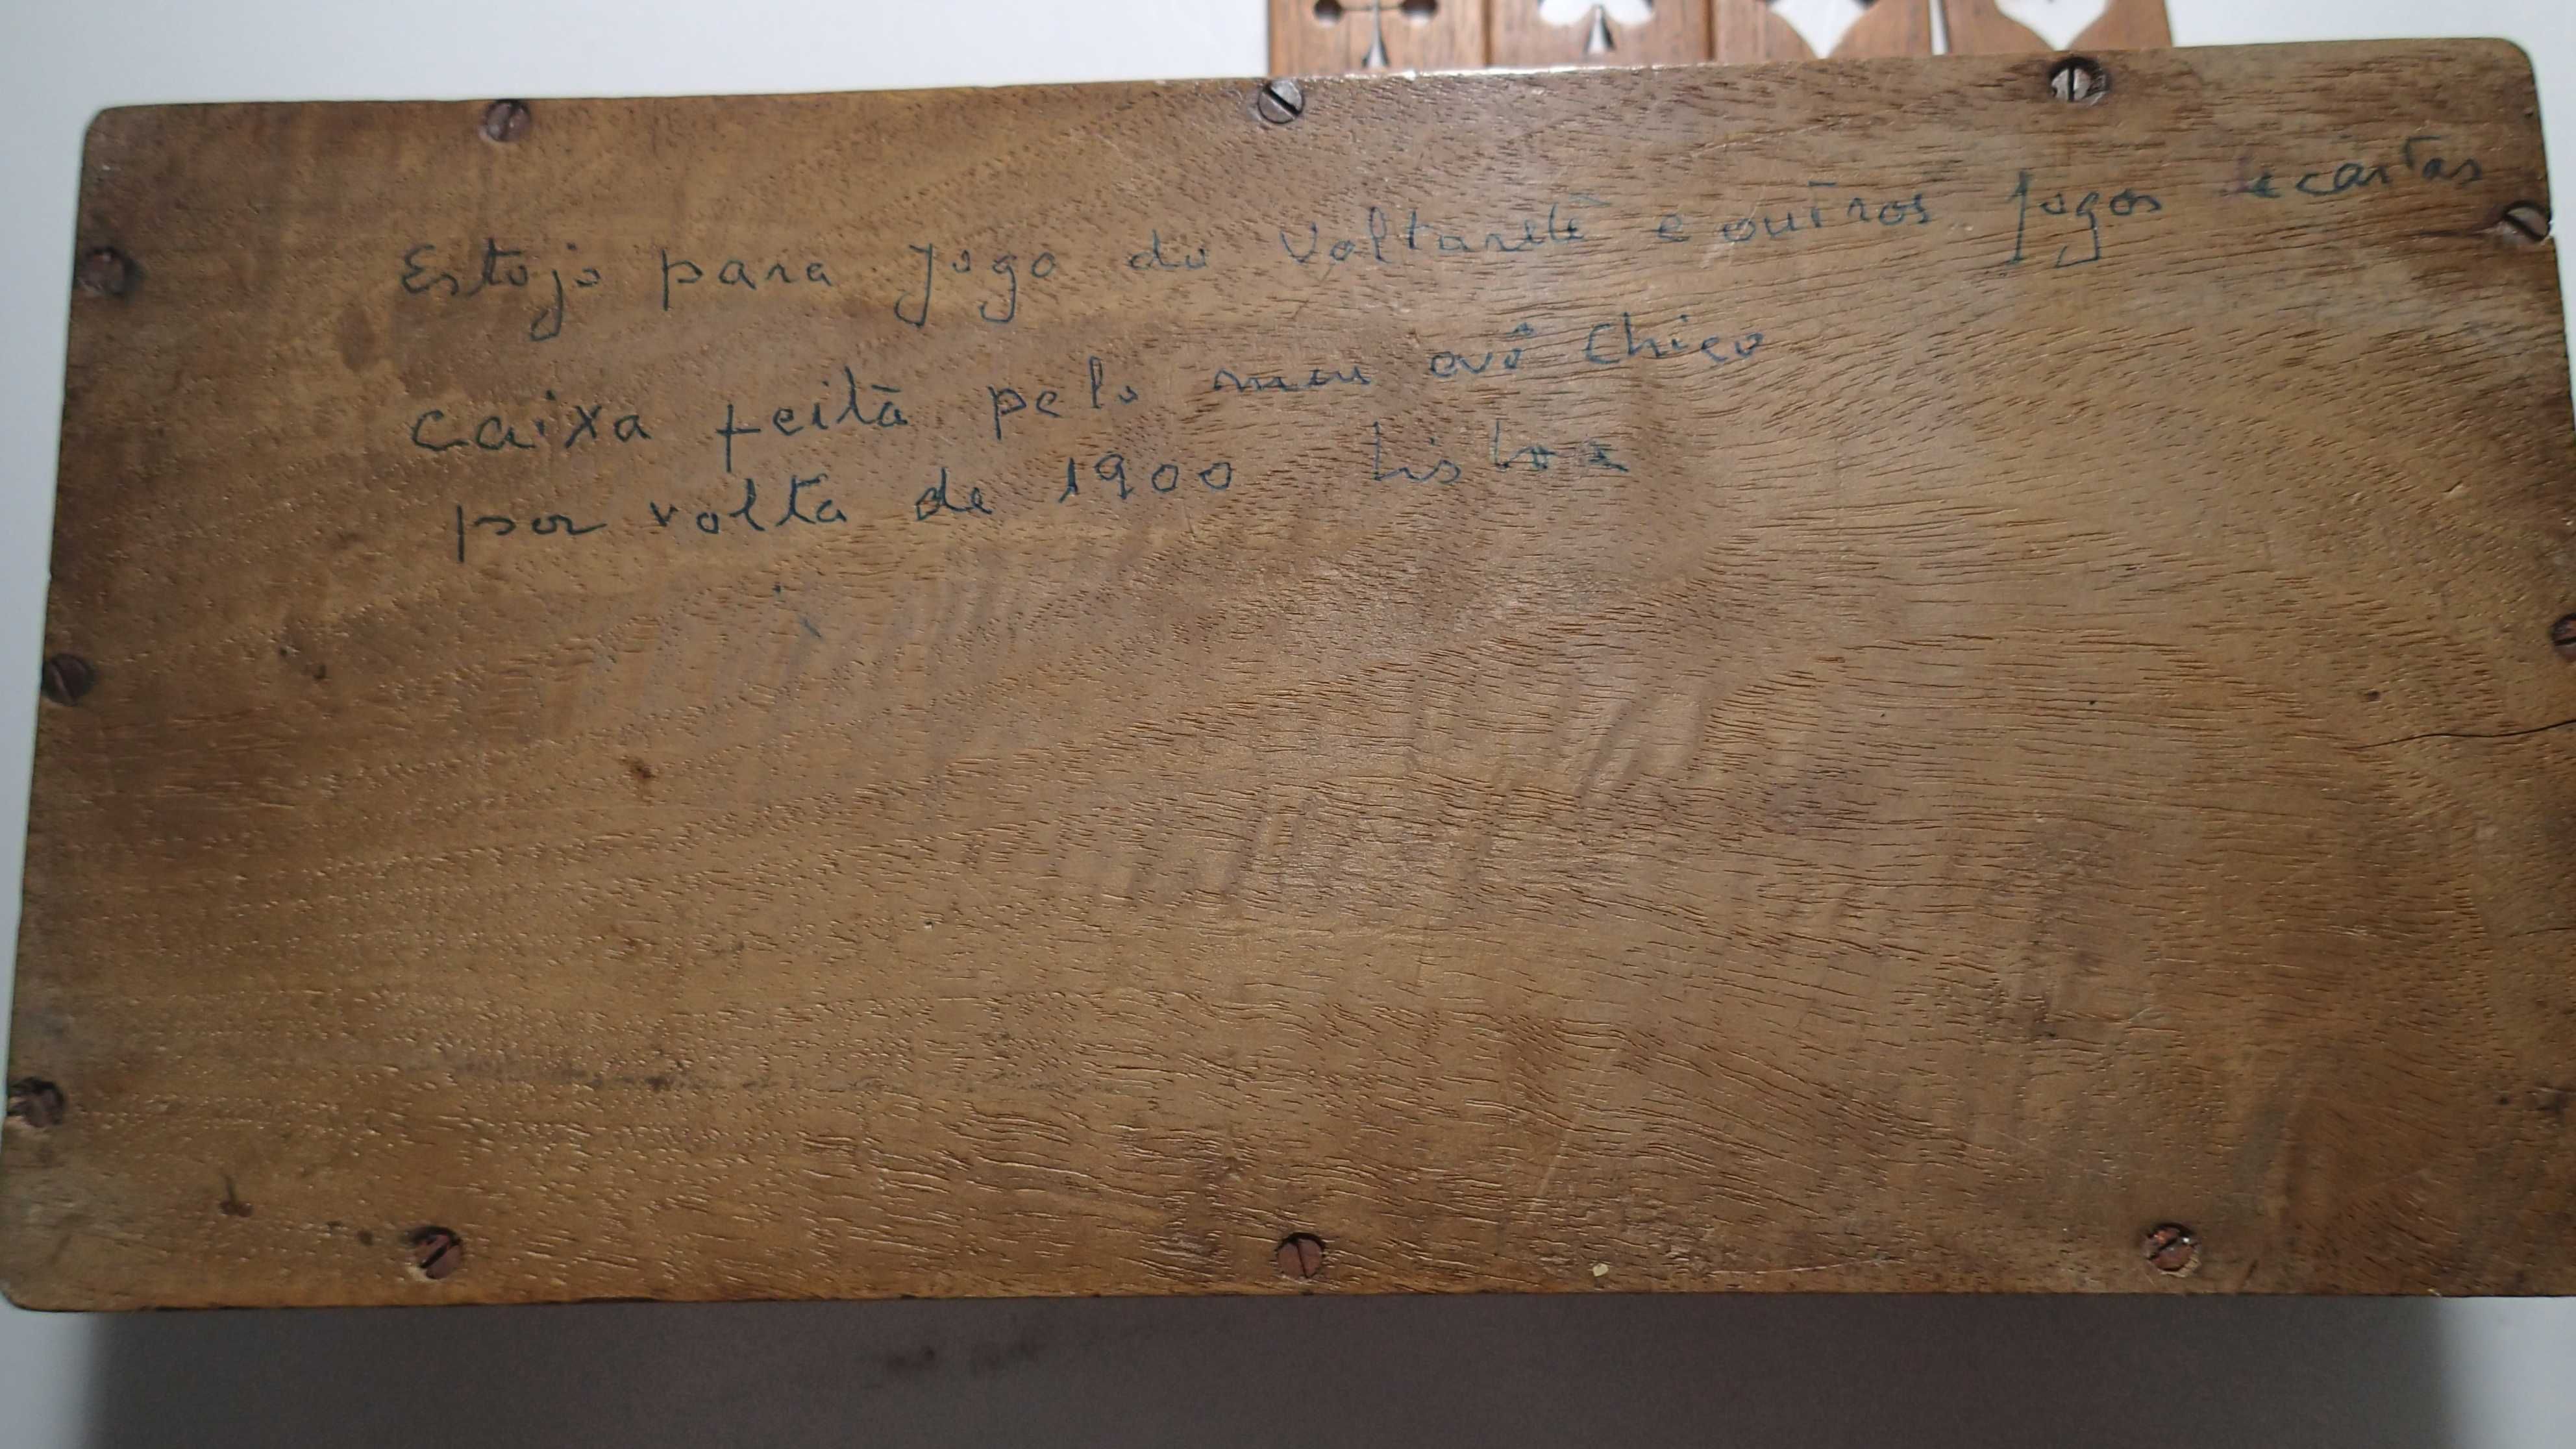 Estojo para Jogo do Voltarete e outros Jogos de cartas
Caixa feita pelo meu avô Chico
por volta de 1900 Lisboa